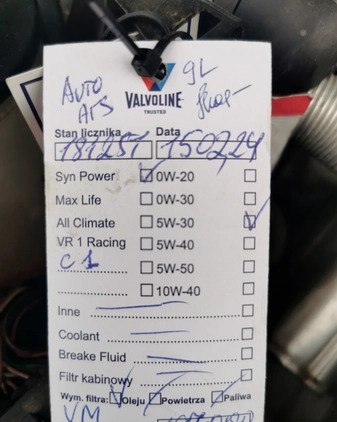 AUTO
ATS
9L
VALVOLINE
TRUSTED
Stan licznika Data
181251 150224
Syn Power 0W-20
Max Life 0W-30
All Climate 5W-30
VR 1 Racing 5W-40
C1
5W-50
10W-40
Inne
Coolant
Breake Fluid
Filtr kabinowy
Wym. filtra: Oleju Powietrza Paliwa
VM